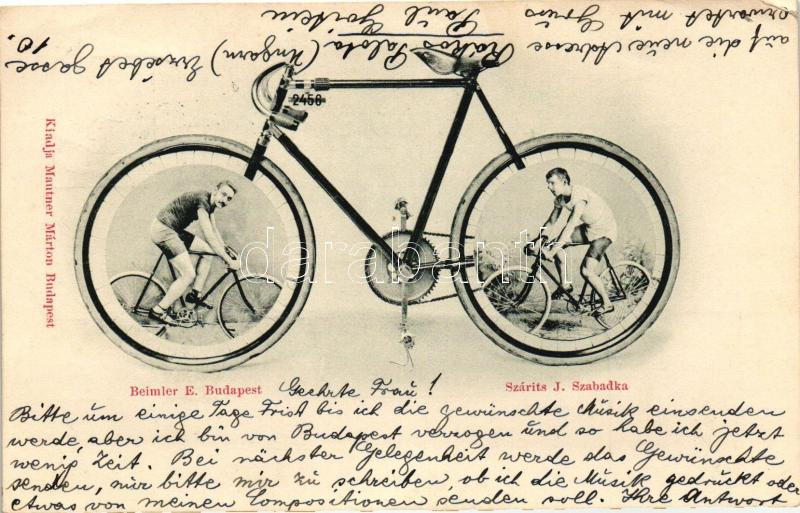 2456
darabanth
Kiadja Mautner Márton Budapest
Beimler E. Budapest
Szárits J. Szabadka
Geehrte Frau!
Bitte um einige Tage Frist bis ich die gewünschte Musik einsenden
werde, aber ich bin von Budapest verzogen und so habe ich jetzt
wenig Zeit. Bei nächster Gelegenheit werde das Gewünschte
senden, nur bitte mir zu schreiben, ob ich die Musik gedruckt oder
etwas von meinen Compositionen senden soll. Ihre Antwort
erwartet mit Gruss
auf die neue Adresse
Paul
Rákos Palota (Ungarn) Erzsébet gasse
10.